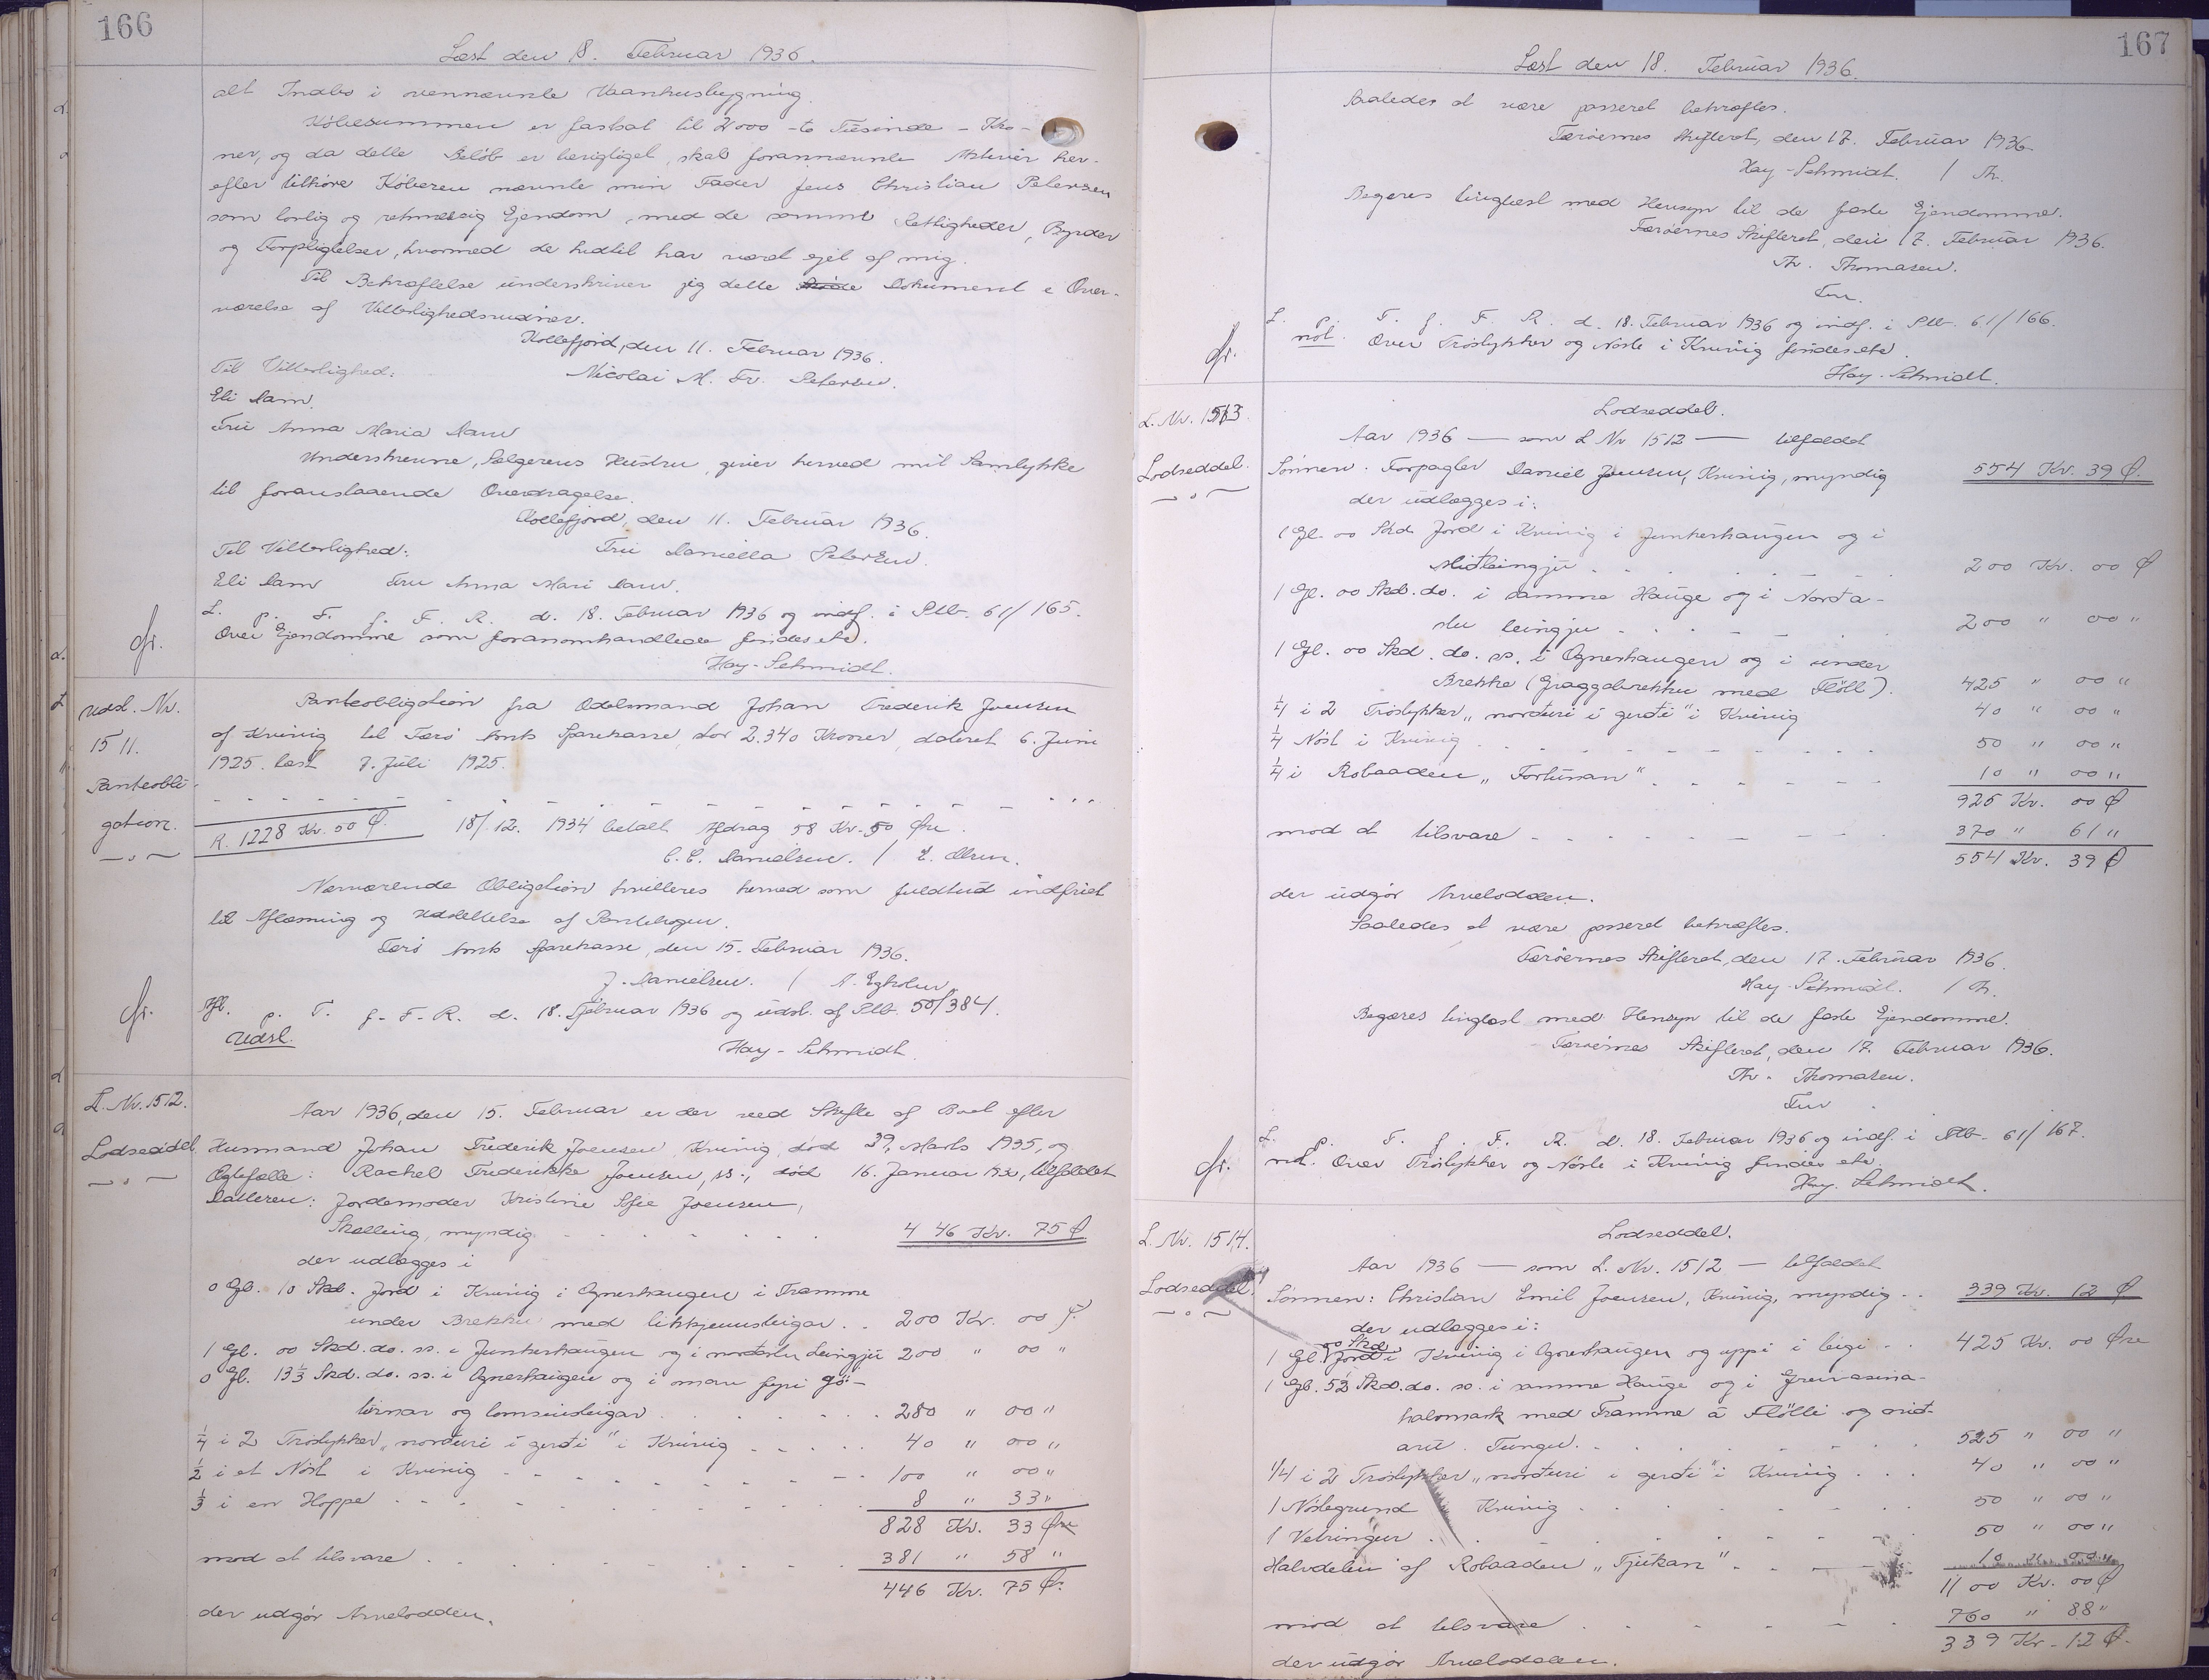 166
Læst den 18. Februar 1936.
alt Indbo i ovennævnte Vaanhusbygning.
Købesummen er fastsat til 2000 - to Tusinde - Kro-
ner, og da dette Beløb er berigtiget, skal forannævnte Matrier her-
efter tilhøre Køberen nævnte min Fader Jens Christian Petersen
som lovlig og retmæssig Ejendom, med de samme Rettigheder, Byrder
og Forpligtelser, hvormed de hidtil har været ejet af mig.
Til Bekræftelse underskriver jeg dette Skøde Dokument i Over-
værelse af Vitterlighedsvidner.
Kollefjord, den 11. Februar 1936.
Til Vitterlighed: Nicolai M. Fr. Petersen.
Eli Dam.
Fru Anna Maria Dam
Undertegnede, Sælgerens Hustru, giver herved mit Samtykke
til foranstaaende Overdragelse.
Kollefjord, den 11. Februar 1936.
Til Vitterlighed: Fru Daniella Petersen.
Eli Dam Fru Anna Mari Dam.
L. p. T. f. F. R. d. 18. Februar 1936 og indf. i Ptb. 61/165.
Over Ejendomme som foranomhandlede findes etc.
Hay-Schmidt.
Udsl. Nr.
1511.
Panteobli-
gation.
Panteobligation fra Odelsmand Johan Frederik Joensen
af Kvivig til Færø Amts Sparekasse, stor 2.340 Kroner, dateret 6. Juni
1925. læst 7. Juli 1925.
R. 1228 Kr. 50 Ø. 18/12. 1934 betalt Afdrag 58 Kr. 50 Øre.
C. C. Danielsen. / E. Olsen.
Nærværende Obligation kvitteres herved som fuldtud indfriet
til Aflæsning og Udslettelse af Pantebogen.
Færø Amts Sparekasse, den 15. Februar 1936.
J. Danielsen. / A. Egholm.
Afl. p. T. f. F. R. d. 18. Februar 1936 og udsl. af Ptb. 50/384.
Udsl.
Hay-Schmidt.
L. Nr. 1512.
Lodseddel
Aar 1936, den 15. Februar er der ved Skifte af Boet efter
Husmand Johan Frederik Joensen, Kvivig, død 29. Marts 1935, og
Ægtefælle: Rachel Frederikke Joensen, ss., død 16. Januar 1930, tilfaldet
Datteren: Jordemoder Kristine Sofie Joensen,
Skælling, myndig 446 Kr. 75 Ø.
der udlægges i
0 Gl. 10 Skd. Jord i Kvivig i Ognerhaugen i Framme
under Brekku med likkjennsteigar. . 200 Kr. 00 Ø.
1 Gl. 00 Skd. do. ss. i Junkerhaugen og i nordastu Leingju 200 " 00 "
0 Gl. 13⅓ Skd. do. ss. i Ognerhaugen og i man fyri gö-
tirnar og lomsuiteigar 280 " 00 "
¼ i 2 Trøslykker "norduri i gerdi" i Kvivig 40 " 00 "
½ i et Nøst i Kvivig 100 " 00 "
⅓ i en Hoppe 8 " 33 "
828 Kr. 33 Øre
mod at tilsvare 381 " 58 "
446 Kr. 75 Ø.
der udgør Arvelodden.
167
Læst den 18. Februar 1936.
Saaledes at være passeret bekræftes.
Færøernes Skifteret, den 17. Februar 1936.
Hay-Schmidt. / Th.
Begæres tinglæst med Hensyn til de faste Ejendomme.
Færøernes Skifteret, den 17. Februar 1936.
Th. Thomasen.
Fm.
L. p. T. f. F. R. d. 18. Februar 1936 og indf. i Ptb. 61/166.
not. Over Trøslykker og Nøste i Kvivig findes etc.
Hay-Schmidt.
L. Nr. 1513
Lodseddel.
Lodseddel.
Aar 1936 — som L Nr 1512 — tilfaldet
Sønnen: Forpagter Daniel Joensen, Kvivig, myndig 554 Kr. 39 Ø.
der udlægges i:
1 Gl. 00 Skd. Jord i Kvivig i Junkerhaugen og i
Midtleingju 200 Kr. 00 Ø
1 Gl. 00 Skd. do. i samme Hauge og i Norda-
stu leingju 200 " 00 "
1 Gl. 00 Skd. do. ss. i Ognerhaugen og i under
Brekku (Graggabrekku med Fløtt). 425 " 00 "
¼ i 2 Trøslykker "norduri i gerdi" i Kvivig 40 " 00 "
¼ Nøst i Kvivig 50 " 00 "
¼ i Robaaden "Fortunan" 10 " 00 "
925 Kr. 00 Ø
mod at tilsvare 370 " 61 "
554 Kr. 39 Ø
der udgør Arvelodden.
Saaledes at være passeret bekræftes.
Færøernes Skifteret, den 17. Februar 1936.
Hay-Schmidt. / Th.
Begæres tinglæst med Hensyn til de faste Ejendomme.
Færøernes Skifteret, den 17. Februar 1936.
Th. Thomasen.
Fm
L. p. T. f. F. R. d. 18. Februar 1936 og indf. i Ptb. 61/167.
not. Over Trøslykker og Nøste i Kvivig findes etc.
Hay-Schmidt.
L. Nr. 1514.
Lodseddel.
Lodseddel.
Aar 1936 — som L. Nr. 1512 — tilfaldet
Sønnen: Christian Emil Joensen, Kvivig, myndig . . 339 Kr. 12 Ø
der udlægges i:
1 Gl. 00 Skd. Jord i Kvivig i Ognerhaugen og uppi i leigi . . 425 Kr. 00 Øre
1 Gl. 5½ Skd. do. ss. i samme Hauge og i Greivasina-
halvmark med Framme á Fløtti og mid-
aru Tungu. 525 " 00 "
1/4 i 2 Trøslykker "norduri i gerdi" i Kvivig 40 " 00 "
1 Nøstegrund Kvivig 50 " 00 "
1 Vetringur 50 " 00 "
Halvdelen af Robaaden "Tjukan" 10 " 00 "
1100 Kr. 00 Ø
mod at tilsvare 760 " 88 "
339 Kr. 12 Ø.
der udgør Arvelodden.